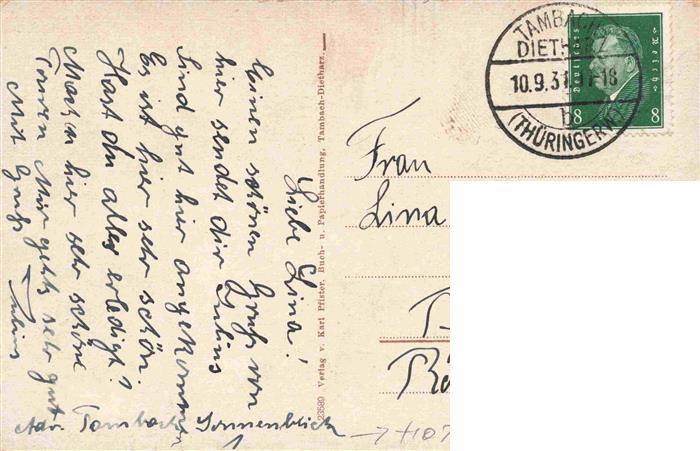 Liebe Lina!
Einen schönen Gruß von
hier sendet dir Julius
Sind gut hier angekommen
Es ist hier sehr schön.
Hast du alles erledigt?
Machen hier sehr schöne
Touren Mir gehts sehr gut
Mit Gruß
Julius
Adr. Tambach Sonnenblick
23589 Verlag v. Karl Pfister, Buch- u. Papierhandlung, Tambach-Dietharz.
TAMBACH-
DIETHARZ
10.9.31 -18
b
(THÜRINGERW.)
Deutsches Reich
8 8
Frau
Lina